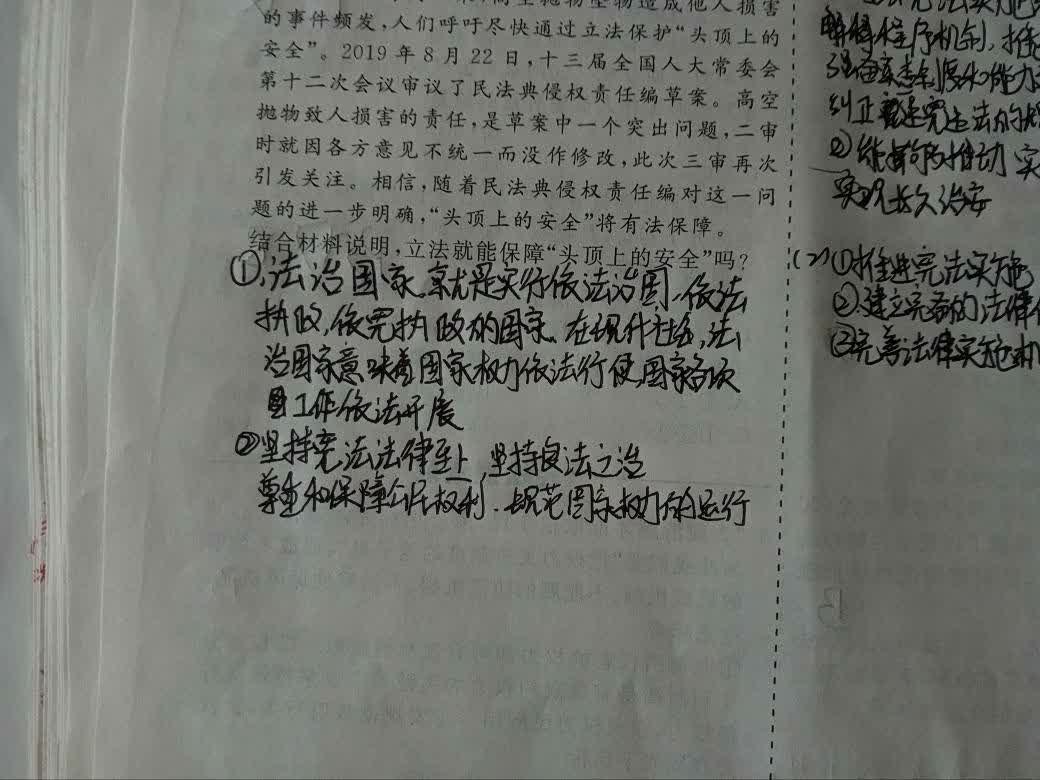 高空抛物坠物造成他人损害
的事件频发，人们呼吁尽快通过立法保护“头顶上的
安全”。2019年8月22日，十三届全国人大常委会
第十二次会议审议了民法典侵权责任编草案。高空
抛物致人损害的责任，是草案中一个突出问题，二审
时就因各方意见不统一而没作修改，此次三审再次
引发关注。相信，随着民法典侵权责任编对这一问
题的进一步明确，“头顶上的安全”将有法保障。
结合材料说明，立法就能保障“头顶上的安全”吗？
①法治国家就是实行依法治国、依法
执政，依宪执政的国家。在现代社会，法
治国家意味着国家权力依法行使，国家各项
工作依法开展
②坚持宪法法律至上，坚持良法之治
尊重和保障公民权利、规范国家权力的运行
解释程序机制，推
纠正
②能够 推动 实
实现长久治安
(2)①推进宪法实施
②建立完备的法律
③完善法律实施机